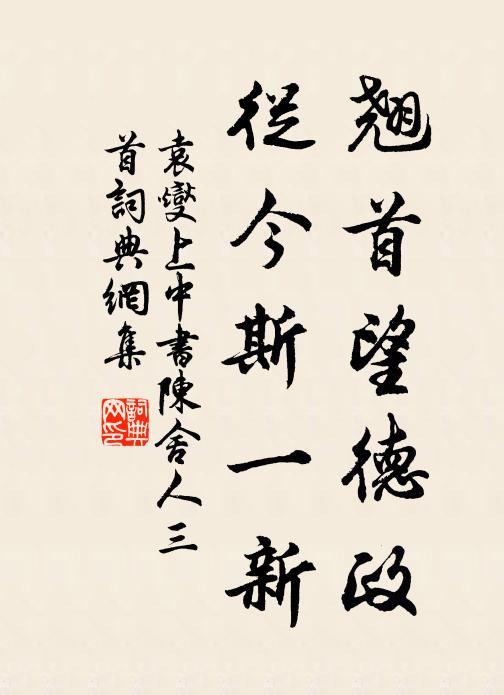 翹首望德政
從今斯一新
袁燮上中書陳舍人三
首詞典網集
詞典
网印